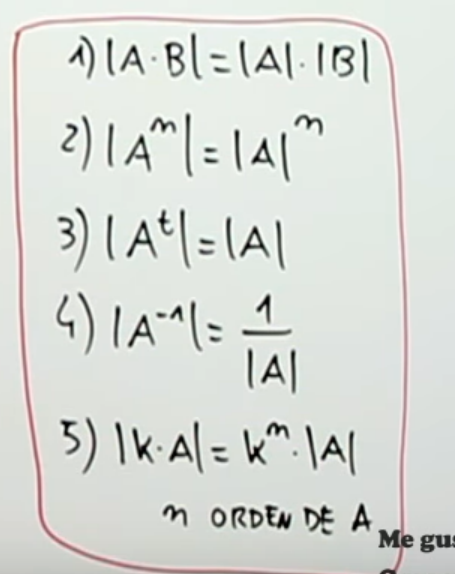 1) |A·B| = |A|·|B|
2) |Aⁿ| = |A|ⁿ
3) |Aᵗ| = |A|
4) |A⁻¹| = 1/|A|
5) |k·A| = kⁿ·|A|
n ORDEN DE A
Me gus